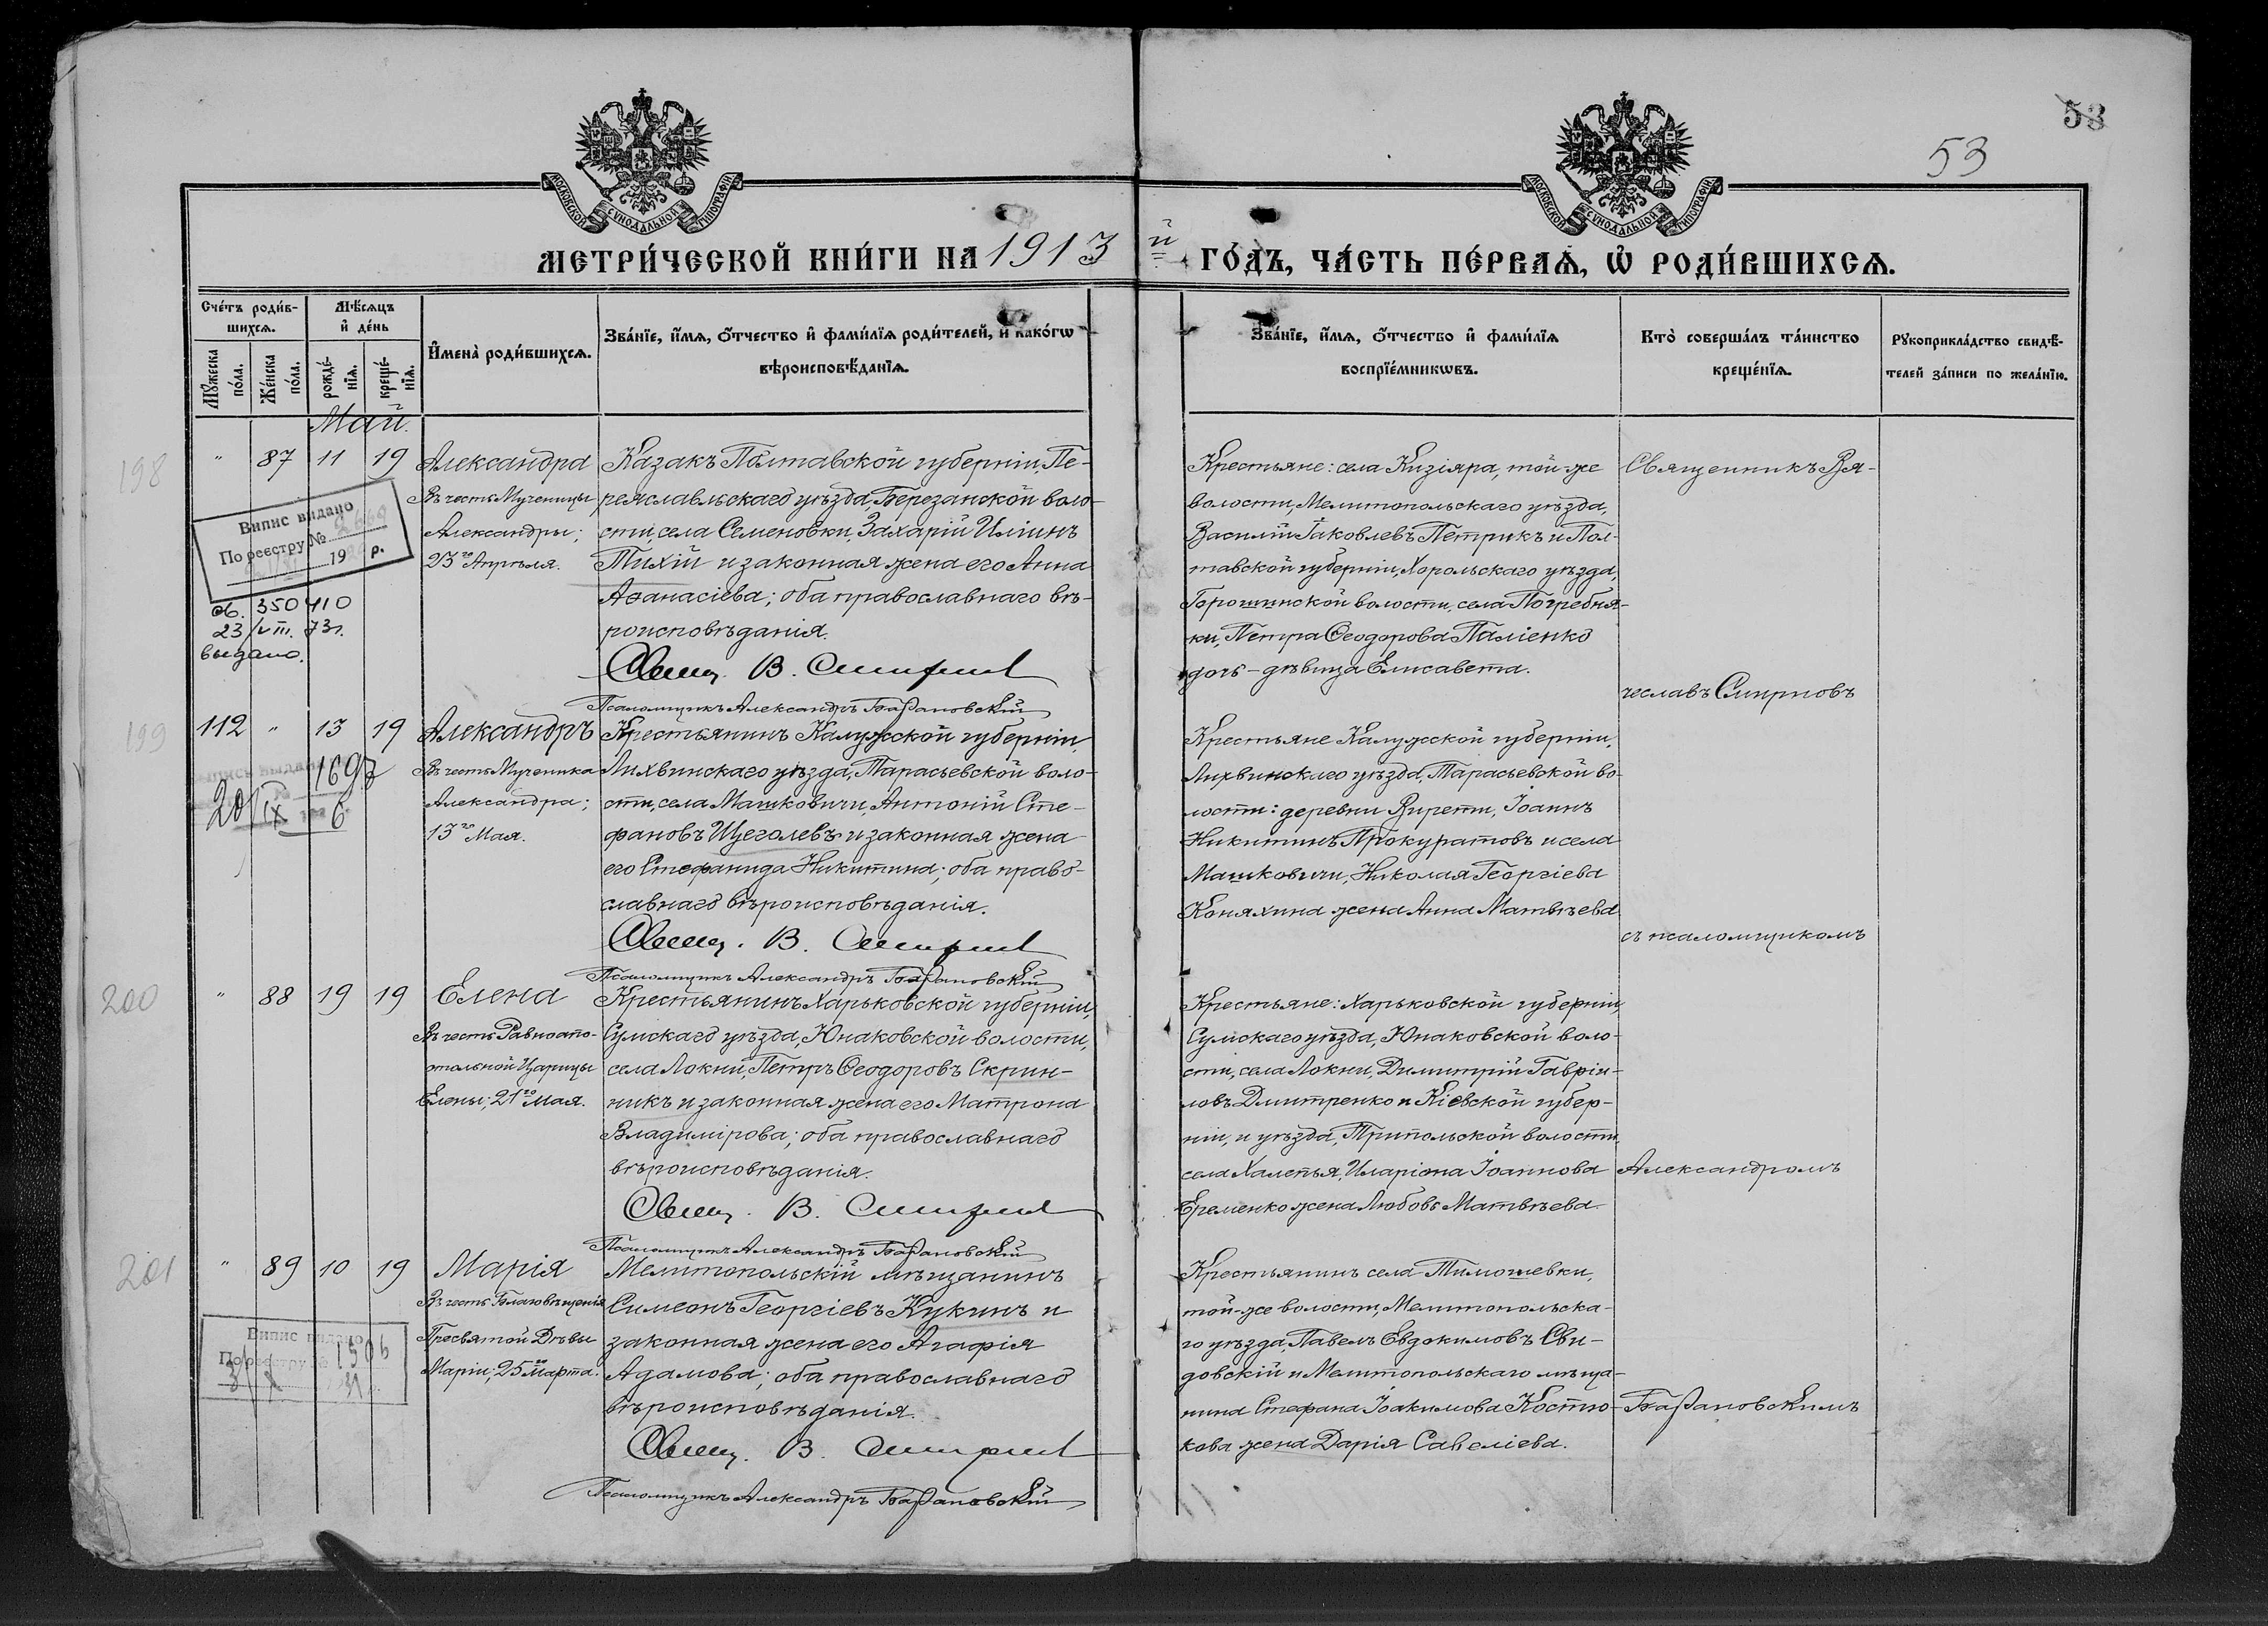 53
53
МОСКОВСКОЙ СѴНОДАЛЬНОЙ ТИПОГРАФІИ
МОСКОВСКОЙ СѴНОДАЛЬНОЙ ТИПОГРАФІИ
МЕТРИ́ЧЕСКОЙ КНИ́ГИ НА 1913 й ГО́ДЪ, ЧА́СТЬ ПЕ́РВАѦ, Ѡ РОДИ́ВШИХСѦ.
Сче́тъ роди́в-
шихсѧ.
Мꙋ́жеска
по́ла.
Же́нска
по́ла.
Мѣ́сѧцъ
и҆ де́нь
рожде́-
нїѧ.
креще́-
нїѧ.
И҆мена̀ роди́вшихсѧ.
Зва́нїе, и҆́мѧ, ѻ҆́тчество и҆ фами́лїѧ роди́телей, и҆ како́гѡ
вѣроисповѣ́данїѧ.
Зва́нїе, и҆́мѧ, ѻ҆́тчество и҆ фами́лїѧ
воспрїе́мникѡвъ.
Кто̀ соверша́лъ та́инство
креще́нїѧ.
Рꙋкоприкла́дство свидѣ́-
телей за́писи по жела́нїю.
Май.
198
" 87 11 19
Александра
Въ честь Мученицы
Александры;
23го Апрѣля.
Випис видано
По реєстру №
19 р.
св. 350410
23/VIII. 73г.
выдано.
Казакъ Полтавской губерніи, Пе-
реяславльскаго уѣзда, Березанской воло-
сти, села Семеновки, Захарій Иліинъ
Тихій и законная жена его Анна
Аѳанасіева; оба православнаго вѣ-
роисповѣданія.
Свящ. В. Смирнов
Псаломщикъ Александръ Барановскій
Крестьяне: села Кизіяра, той-же
волости, Мелитопольскаго уѣзда,
Василій Іаковлевъ Петрикъ и Пол-
тавской губерніи, Хорольскаго уѣзда,
Горошинской волости, села Погребня-
ки, Петра Ѳеодорова Паліенко
дочь - дѣвица Елисавета.
Священникъ Вя-
чеславъ Смирновъ
199
112 " 13 19
Александръ
Въ честь Мученика
Александра;
13го Мая.
1697
20/IX 6
Крестьянинъ Калужской губерніи,
Лихвинскаго уѣзда, Тарасьевской воло-
сти, села Машковичи, Антоній Сте-
фановъ Щеголевъ и законная жена
его Стефанида Никитина; оба право-
славнаго вѣроисповѣданія.
Свящ. В. Смирнов
Псаломщикъ Александръ Барановскій
Крестьяне Калужской губерніи,
Лихвинскаго уѣзда, Тарасьевской во-
лости: деревни Вирети, Іоаннъ
Никитинъ Прокуратовъ и села
Машковичи, Николая Георгіева
Коняхина жена Анна Матвѣева
съ псаломщикомъ
200
" 88 19 19
Елена
Въ честь Равноапо-
стольной Царицы
Елены; 21го Мая.
Крестьянинъ Харьковской губерніи,
Сумскаго уѣзда, Юнаковской волости,
села Локни, Петръ Ѳеодоровъ Скрин-
никъ и законная жена его Матрона
Владимірова; оба православнаго
вѣроисповѣданія.
Свящ. В. Смирнов
Псаломщикъ Александръ Барановскій
Крестьяне: Харьковской губерніи,
Сумскаго уѣзда, Юнаковской воло-
сти, села Локни, Димитрій Гавріи-
ловъ Дмитренко и Кіевской губер-
ніи, и уѣзда, Трипольской волости,
села Халепья, Иларіона Іоаннова
Еременко жена Любовь Матвѣева.
Александромъ
201
" 89 10 19
Марія
Въ честь Благовѣщенія
Пресвятой Дѣвы
Маріи; 25го Марта.
Випис видано
По реєстру № 1506
3/X 31 р.
Мелитопольскій мѣщанинъ
Симеонъ Георгіевъ Кукинъ и
законная жена его Агафія
Адамова; оба православнаго
вѣроисповѣданія.
Свящ. В. Смирнов
Псаломщикъ Александръ Барановскій
Крестьянинъ села Тимошевки,
той-же волости, Мелитопольска-
го уѣзда, Павелъ Евдокимовъ Сви-
довскій и Мелитопольскаго мѣща-
нина Стефана Іоакимова Костю-
кова жена Дарія Савеліева.
Барановскимъ